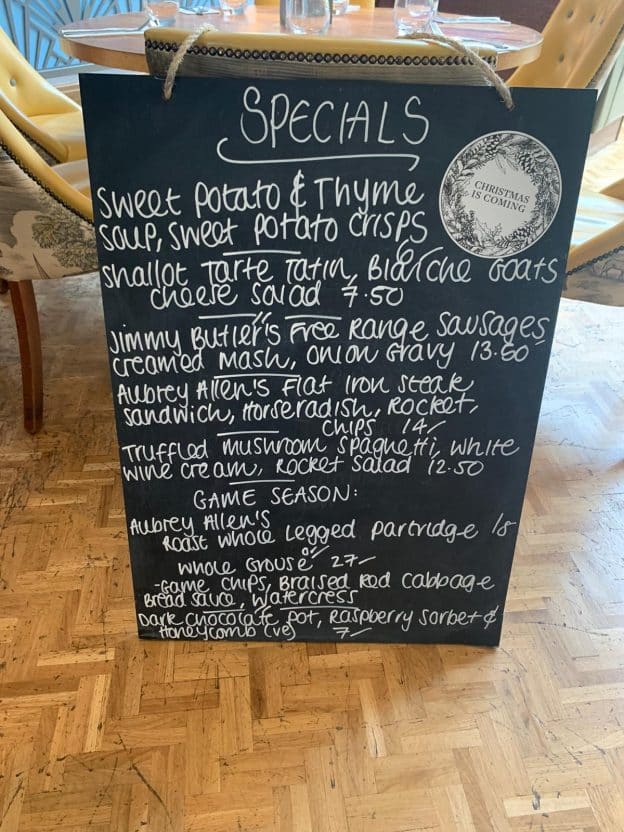 SPECIALS
CHRISTMAS
IS COMING
Sweet Potato & Thyme
Soup, Sweet Potato Crisps
6/
Shallot Tarte Tatin, Blanche Goats
Cheese Salad 7.50
Jimmy Butler's Free Range Sausages
Creamed Mash, Onion Gravy 13.60
Aubrey Allen's Flat Iron Steak
Sandwich, Horseradish, Rocket,
Chips 14/
Truffled Mushroom Spaghetti, White
Wine Cream, Rocket Salad 12.50
GAME SEASON:
Aubrey Allen's
Roast Whole Legged Partridge 18
or
Whole Grouse 27/
-Game Chips, Braised Red Cabbage
Bread Sauce, Watercress
Dark Chocolate Pot, Raspberry Sorbet &
Honeycomb (ve) 7/